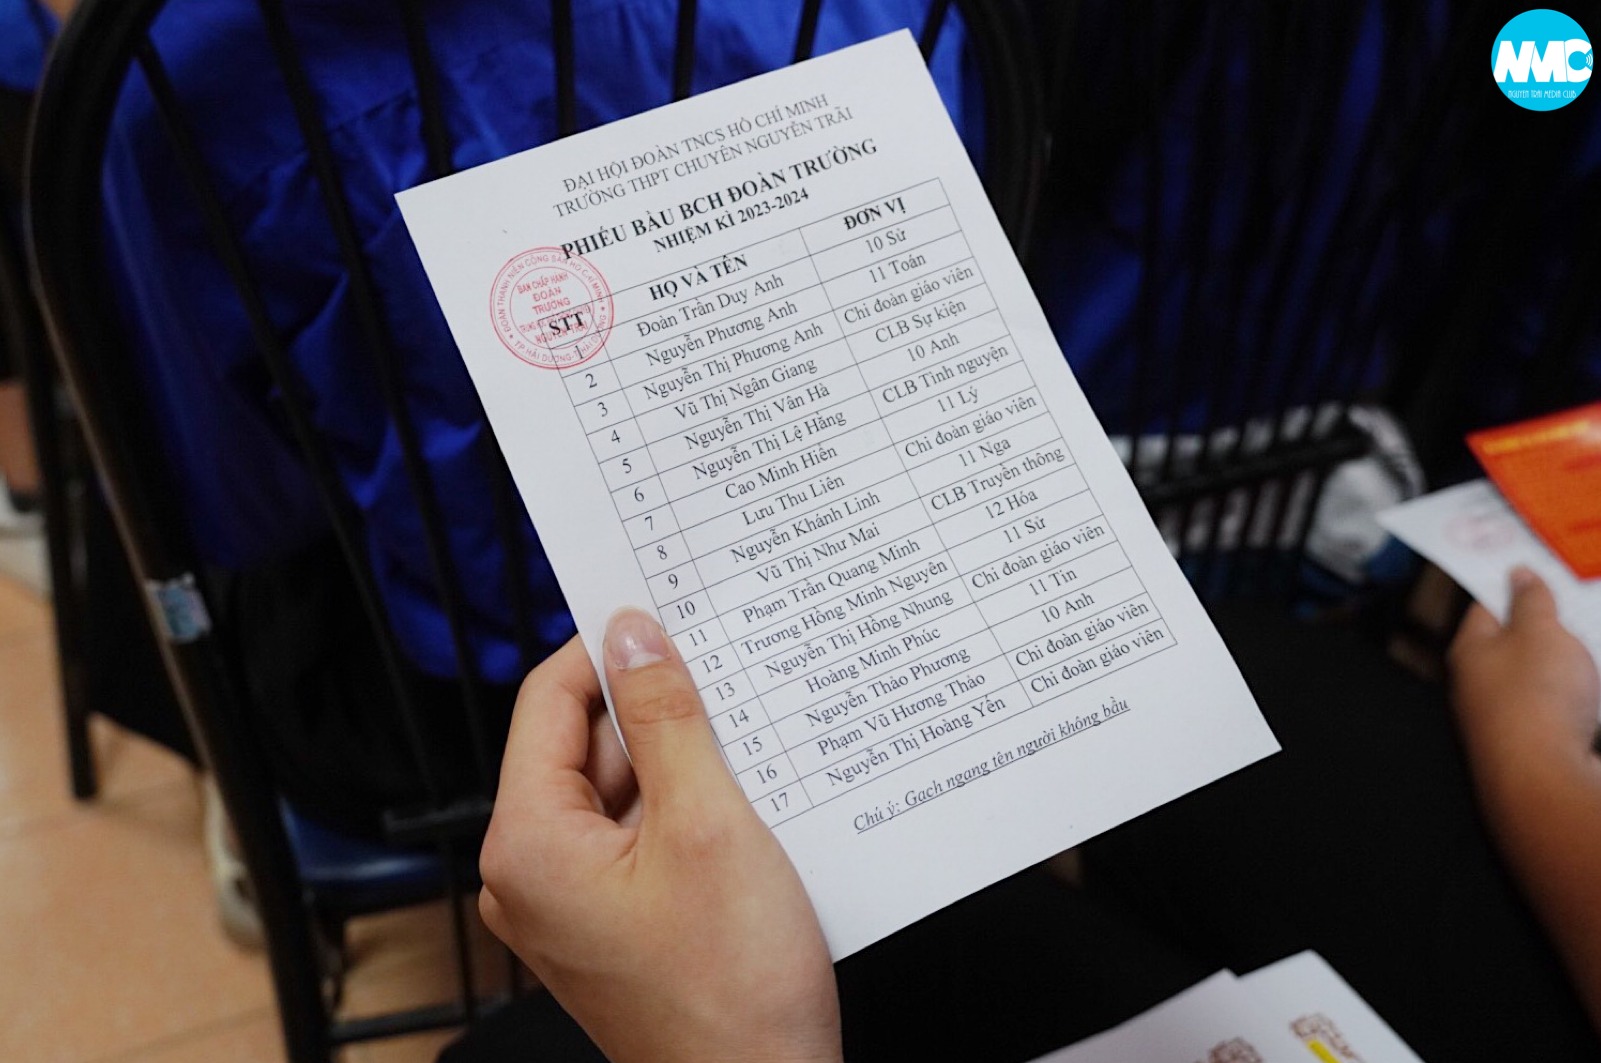 NMC
NGUYEN TRAI MEDIA CLUB
ĐẠI HỘI ĐOÀN TNCS HỒ CHÍ MINH
TRƯỜNG THPT CHUYÊN NGUYỄN TRÃI
PHIẾU BẦU BCH ĐOÀN TRƯỜNG
NHIỆM KÌ 2023-2024
STT HỌ VÀ TÊN ĐƠN VỊ
1 Đoàn Trần Duy Anh 10 Sử
2 Nguyễn Phương Anh 11 Toán
3 Nguyễn Thị Phương Anh Chi đoàn giáo viên
4 Vũ Thị Ngân Giang CLB Sự kiện
5 Nguyễn Thị Vân Hà 10 Anh
6 Nguyễn Thị Lệ Hằng CLB Tình nguyện
7 Cao Minh Hiền 11 Lý
8 Lưu Thu Liên Chi đoàn giáo viên
9 Nguyễn Khánh Linh 11 Nga
10 Vũ Thị Như Mai CLB Truyền thông
11 Phạm Trần Quang Minh 12 Hóa
12 Trương Hồng Minh Nguyên 11 Sử
13 Nguyễn Thị Hồng Nhung Chi đoàn giáo viên
14 Hoàng Minh Phúc 11 Tin
15 Nguyễn Thảo Phương 10 Anh
16 Phạm Vũ Hương Thảo Chi đoàn giáo viên
17 Nguyễn Thị Hoàng Yến Chi đoàn giáo viên
Chú ý: Gạch ngang tên người không bầu
ĐOÀN THANH NIÊN CỘNG SẢN HỒ CHÍ MINH
BAN CHẤP HÀNH
ĐOÀN
TRƯỜNG
NGUYỄN TRÃI
TP. HẢI DƯƠNG-T.HẢI DƯƠNG